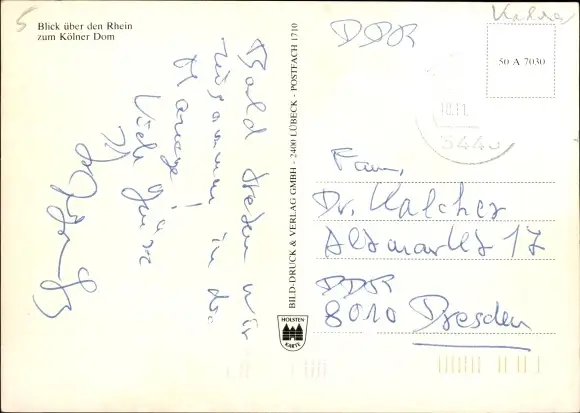 5
Blick über den Rhein
zum Kölner Dom
Bald stehen wir
zusammen in der
Manege!
Viele Grüße
BILD-DRUCK & VERLAG GMBH - 2400 LÜBECK - POSTFACH 1710
HOLSTEN
KARTE
DDR
50 A 7030
10.11.
5440
Fam.
Dr. Kalcher
Altmarkt 17
DDR
8010 Dresden